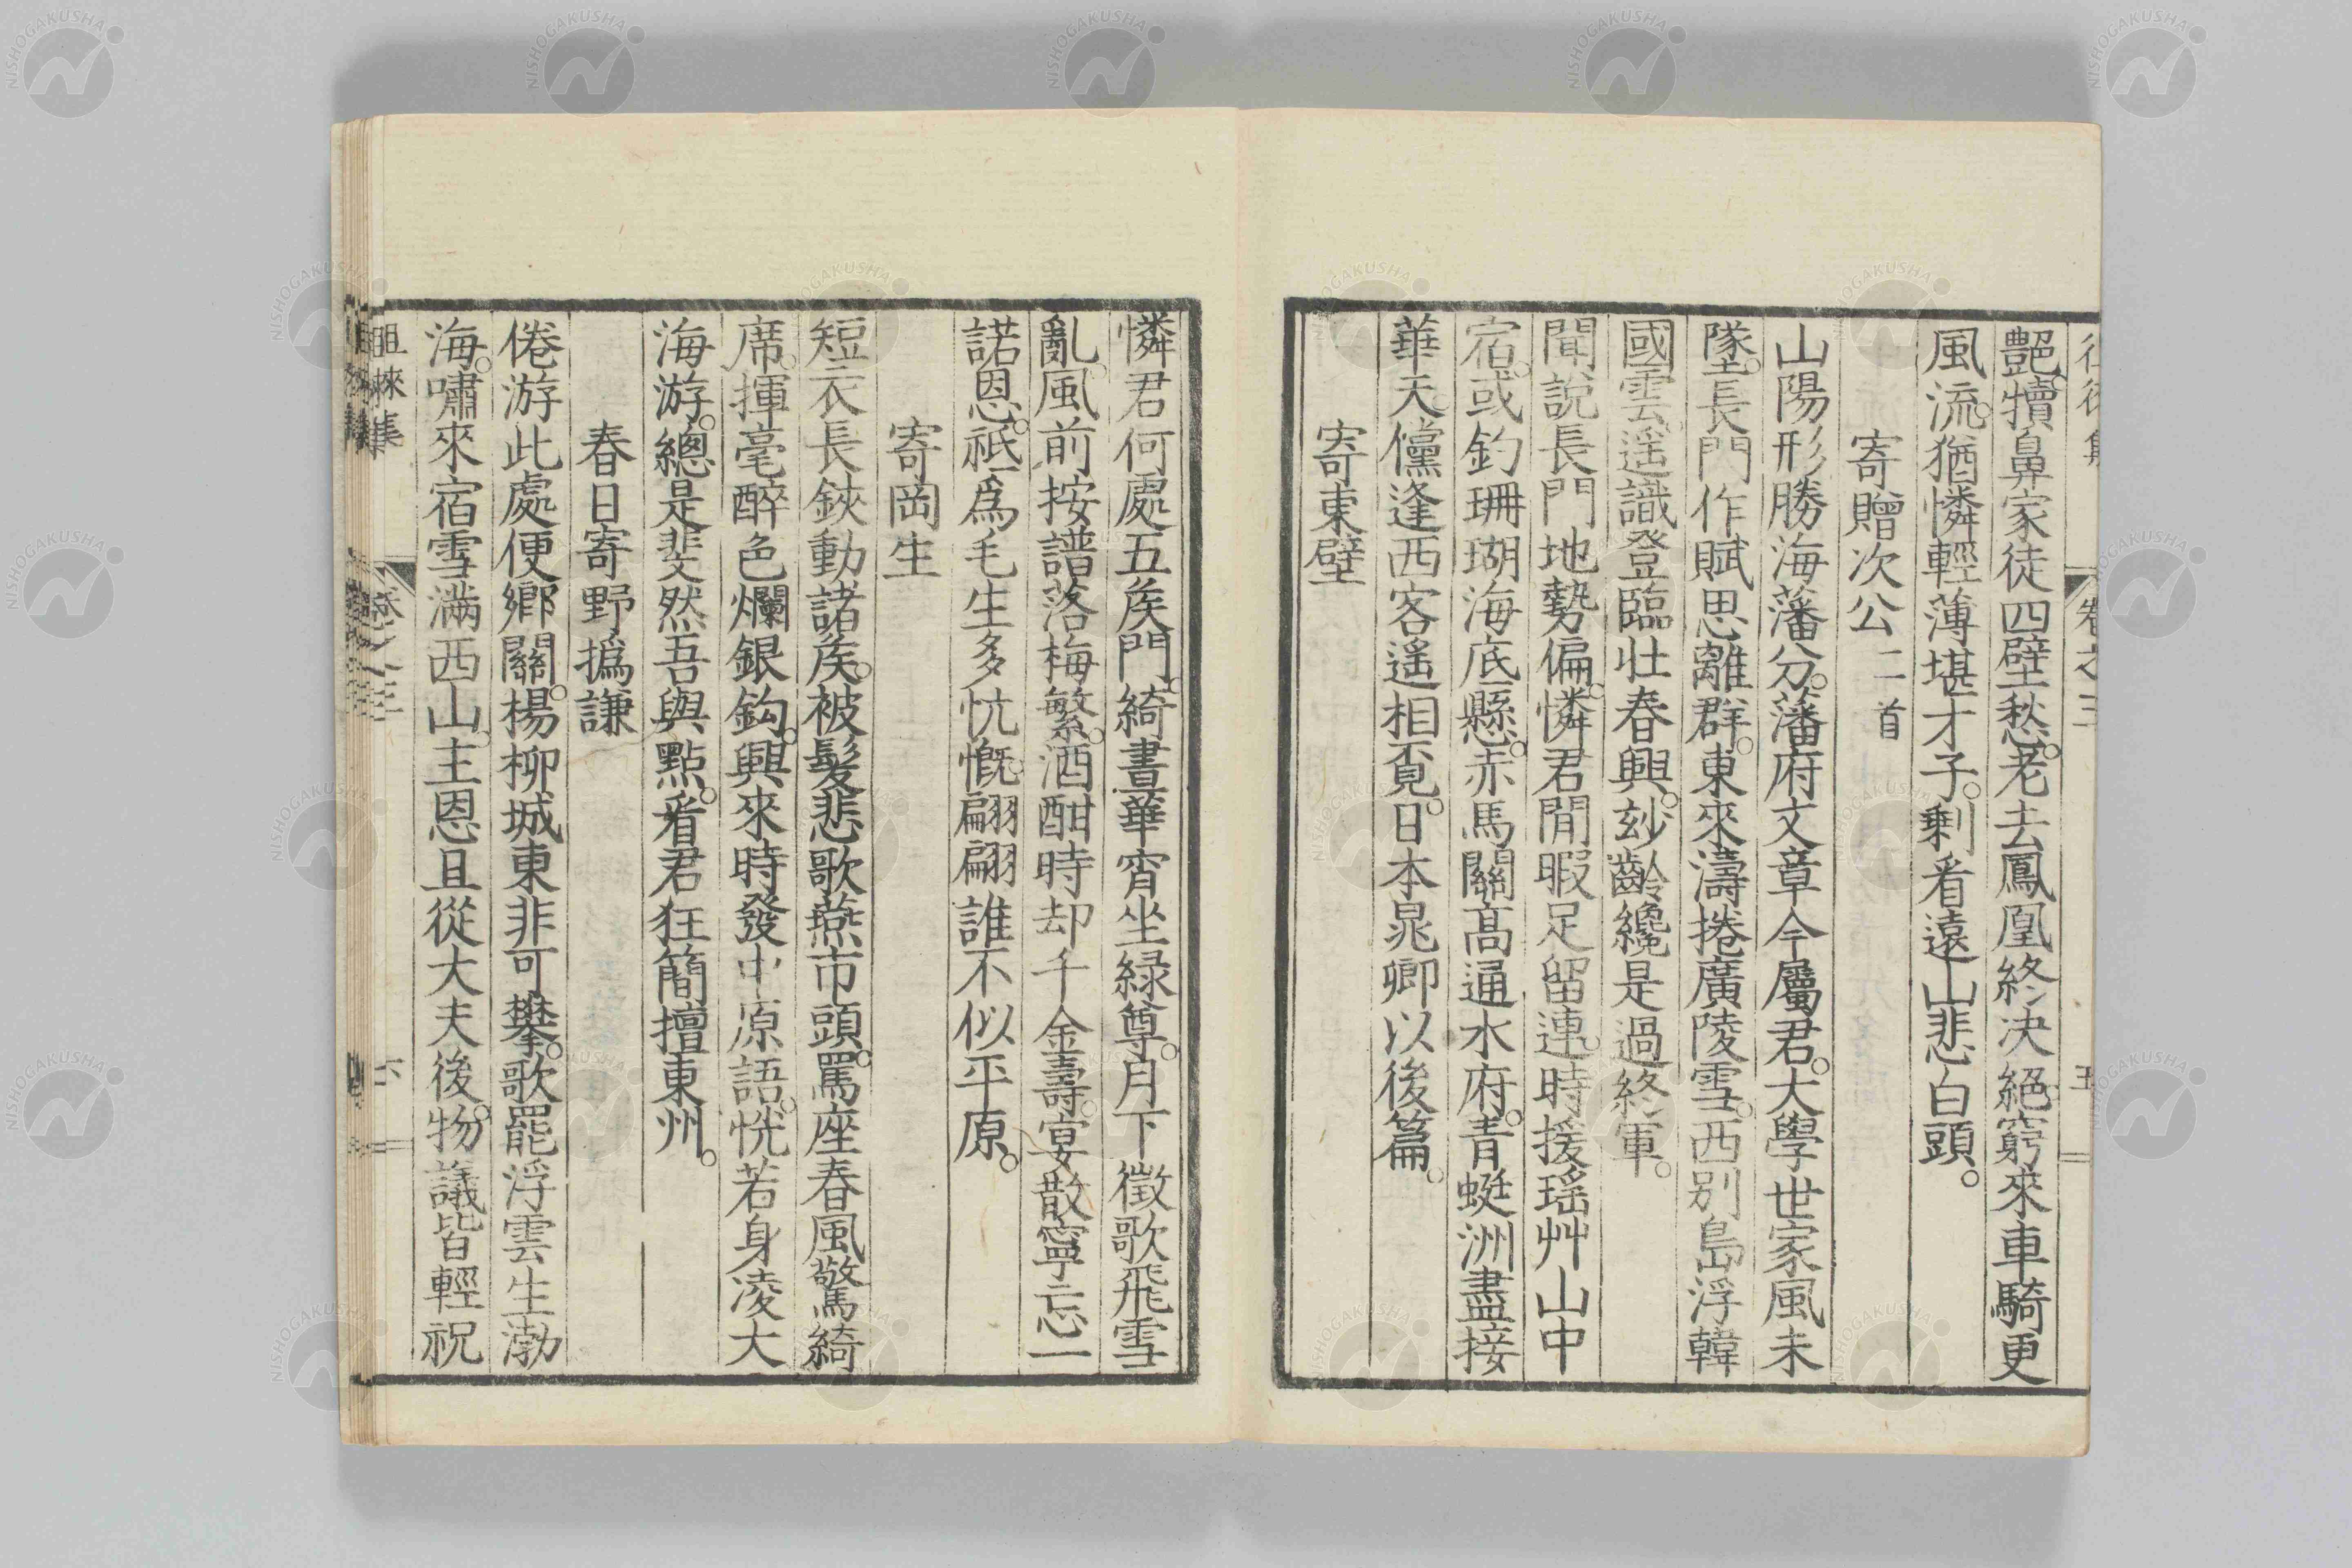 艷。犢鼻家徒四壁愁。老去鳳凰終決絕。窮來車騎更
風流。猶憐輕薄堪才子。剩看遠山悲白頭。
寄贈次公二首
山陽形勝海藩分。藩府文章今屬君。大學世家風未
墜。長門作賦思離群。東來濤捲廣陵雪。西別島浮韓
國雲。遥識登臨壯春興。玅齡纔是過終軍。
聞說長門地勢偏。憐君閒暇足留連。時援瑶艸山中
宿。或釣珊瑚海底懸。赤馬關高通水府。青蜓洲盡接
華天。儻逢西客遥相覔。日本晁卿以後篇。
寄東壁
憐君何處五矦門。綺晝華宵坐緑尊。月下徵歌飛雪
亂。風前按譜落梅繁。酒酣時却千金壽。宴散寧忘一
諾恩。祇爲毛生多忼慨。翩翩誰不似平原。
寄岡生
短衣長鋏動諸矦。被髮悲歌燕市頭。罵座春風驚綺
席。揮毫醉色爛銀鈎。興來時發中原語。恍若身凌大
海游。總是斐然吾與點。看君狂簡擅東州。
春日寄野撝謙
倦游此處便鄉關。楊柳城東非可攀。歌罷浮雲生渤
海。嘯來宿雪滿西山。主恩且從大夫後。物議皆輕祝
徂徠集
卷之三
六
卷之三
五
NISHOGAKUSHA